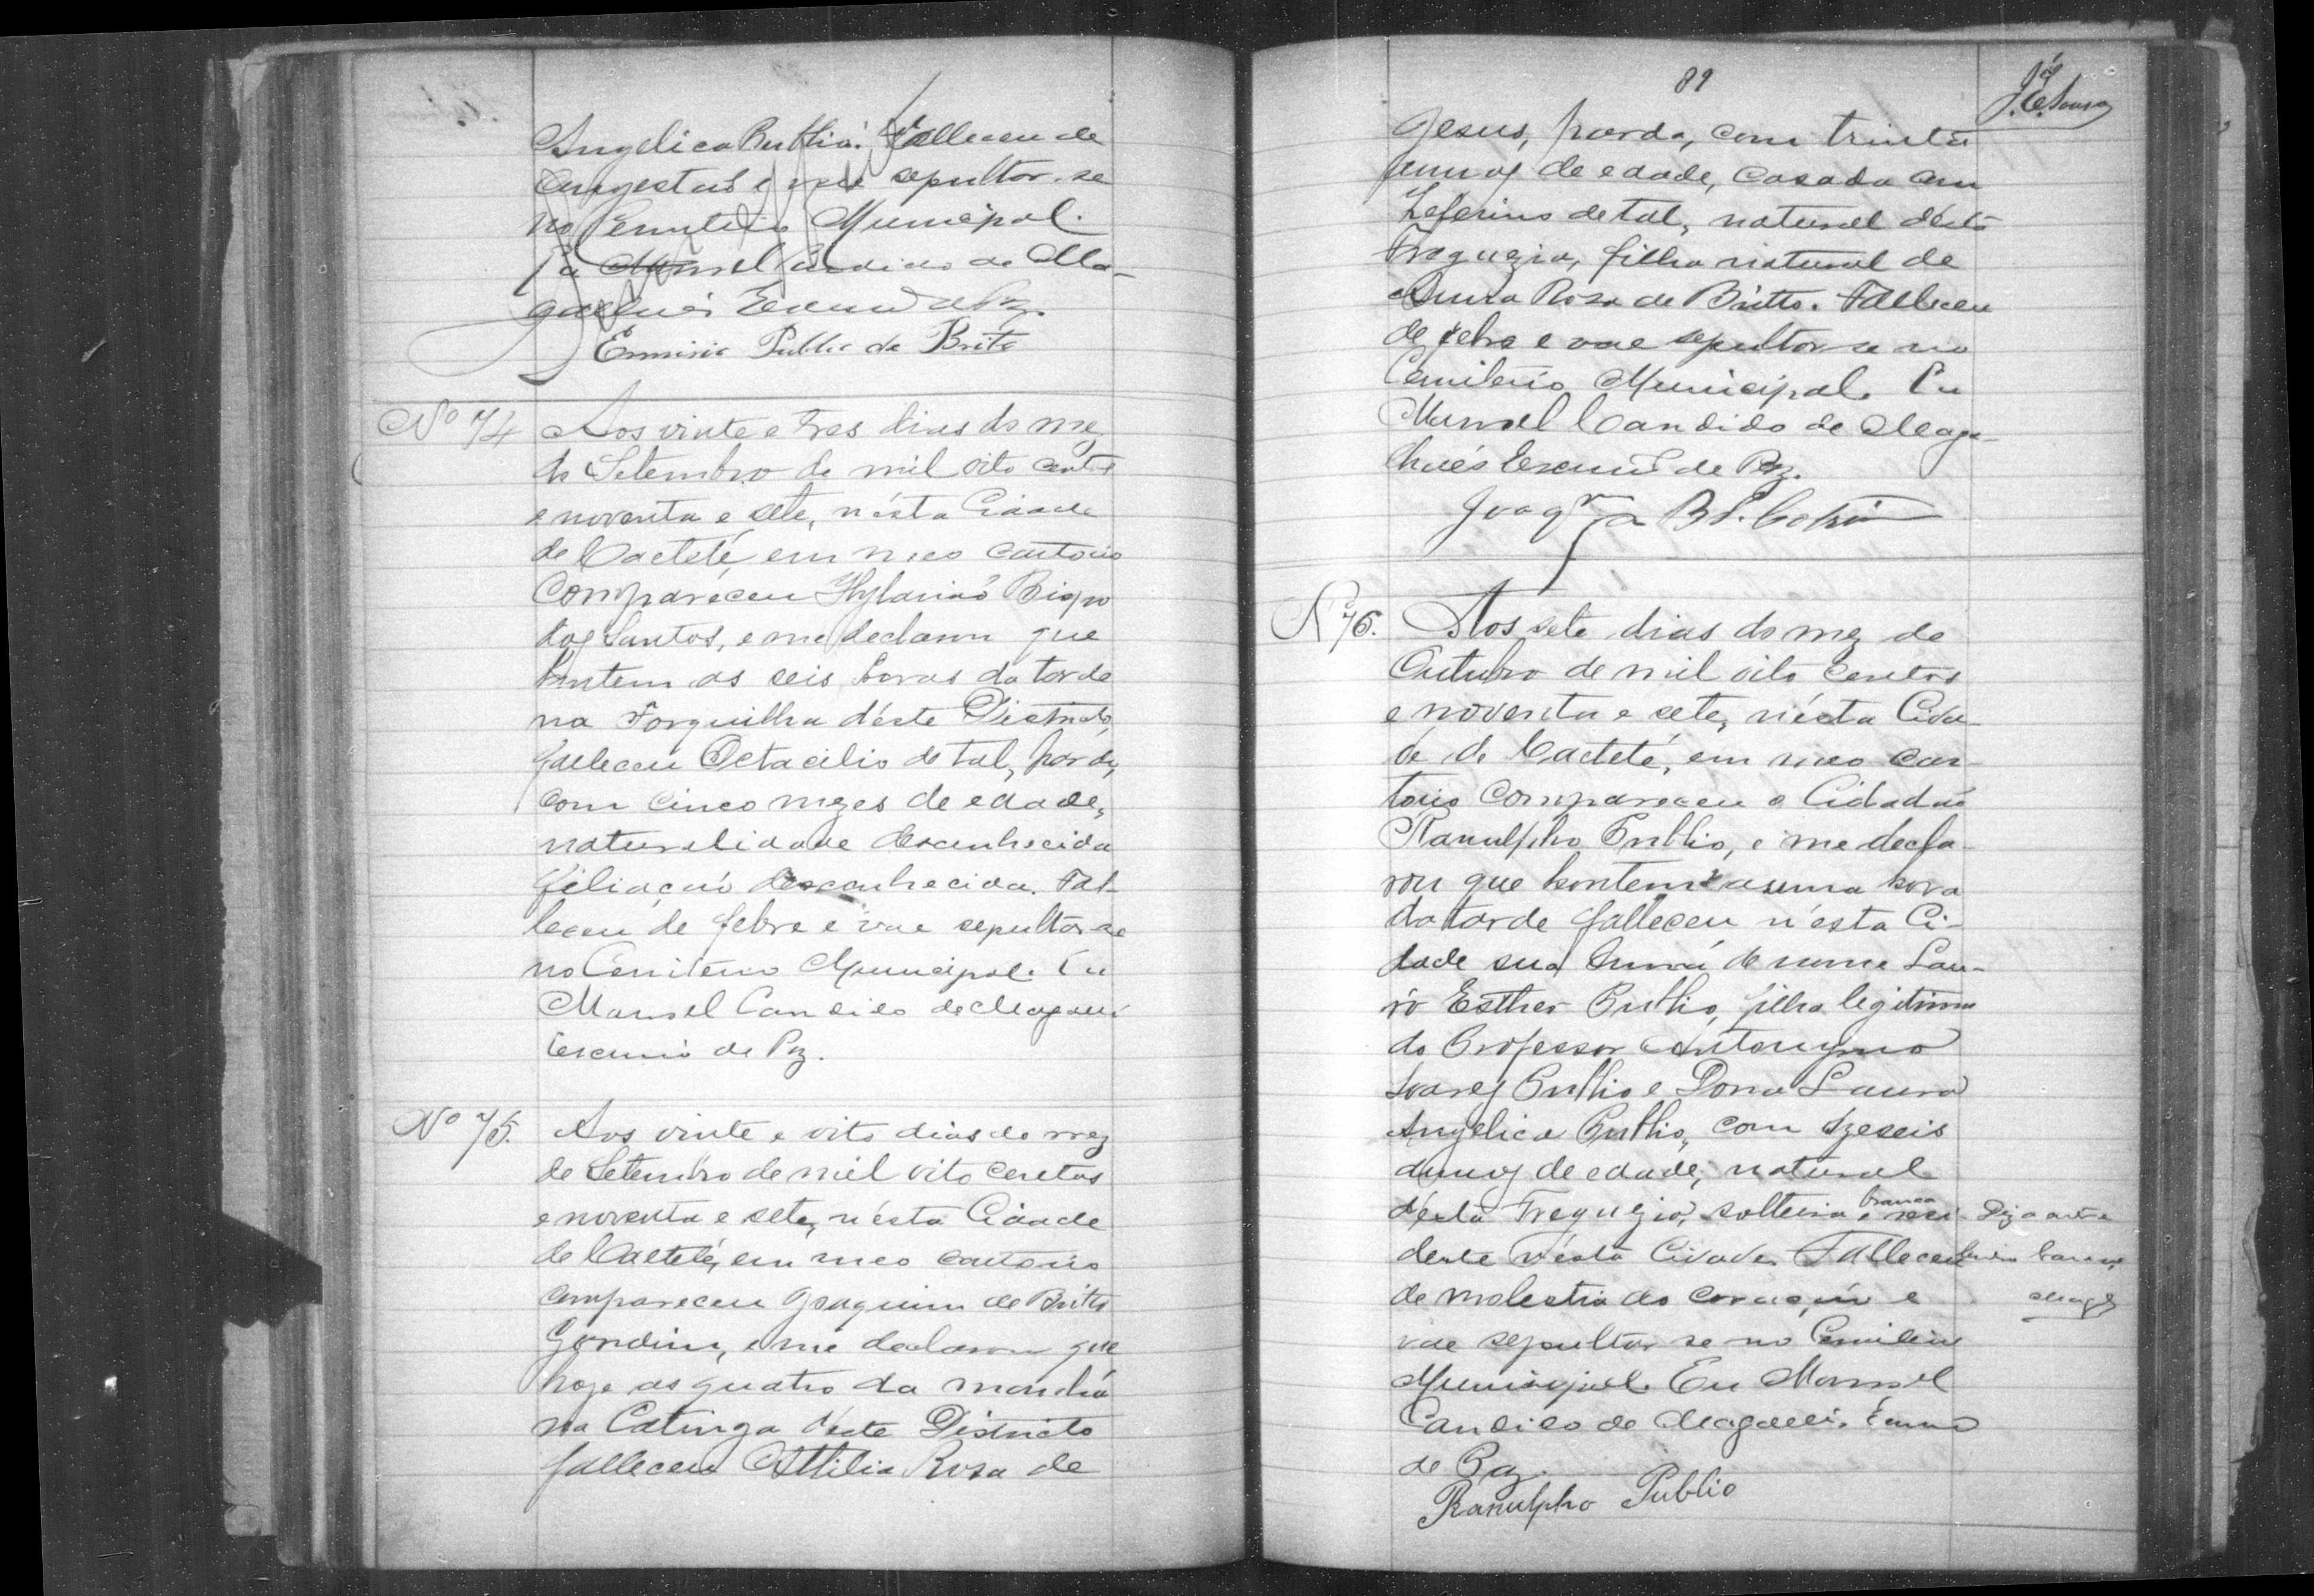 Angelica Publio. Falleceu de
Congestão e vae sepultar-se
no Cemiterio Municipal.
Manoel Candido de Ma-
galhães Escrivão de Paz.
Publio de Brito
Nº 74 Aos vinte e tres dias do mez
de Setembro de mil oito centos
e noventa e sete, n'ésta Cidade
de Caeteté, em meo cartorio
compareceu Hylarião Bispo
dos Santos, e me declarou que
hontem as seis horas da tarde
na Forquilha d'éste Districto,
falleceu Octacilio de tal, pardo,
com cinco mezes de edade,
naturalidade desconhecida
filiação desconhecida. Fal-
leceu de febre e vae sepultar-se
no Cemiterio Municipal. Eu
Manoel Candido de Magalhães
Escrivão de Paz.
Nº 75. Aos vinte e oito dias do mez
de Setembro de mil oito centos
e noventa e sete, n'ésta Cidade
de Caeteté, em meo cartorio
compareceu Joaquim de Britto
Gondim, e me declarou que
hoje as quatro da manhã
na Catinga d'este Districto
falleceu Attilia Rosa de
89
J. C. Souza
Jesus, parda, com trinta
annos de edade, casada com
Zeferino de tal, natural d'esta
Freguezia, filha natural de
Anna Rosa de Britto. Falleceu
de febre e vae sepultar-se no
Cemiterio Municipal. Eu
Manoel Candido de Maga-
lhães Escrivão de Paz.
Joaqm
Nº 76. Aos sete dias do mez de
Outubro de mil oito centos
e noventa e sete, n'ésta Cida-
de de Caeteté, em meo car-
torio compareceu o Cidadão
Ranulpho Publio, e me decla-
rou que hontem a uma hora
da tarde falleceu n'esta Ci-
dade sua Irmã de nome Lau-
ra Esther Publio, filha legitima
do Professor Antonymo
Soares Publio e Dona Laura
Angelica Publio, com dzeseis
annos de edade, natural
d'ésta Freguezia, solteira, branca e resi-
dente n'ésta Cidade. Falleceu
de molestia do coração e
vae sepultar-se no Cemiterio
Municipal. Eu Manoel
Candido de Magalhães Escrivão
de Paz.
Ranulpho Publio
Diz a entre
linha branca,
Magês